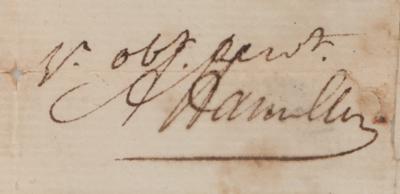 Yr. obt. servt.
A Hamilton